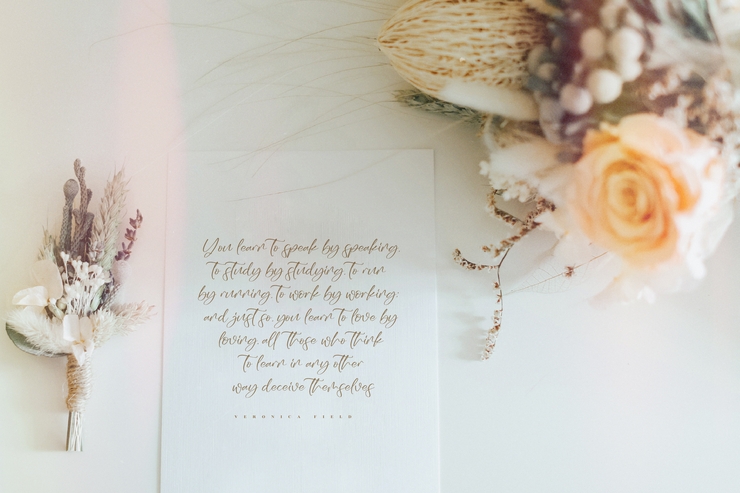 You learn to speak by speaking,
to study by studying, to run
by running, to work by working;
and just so, you learn to love by
loving. all those who think
to learn in any other
way deceive themselves
VERONICA FIELD